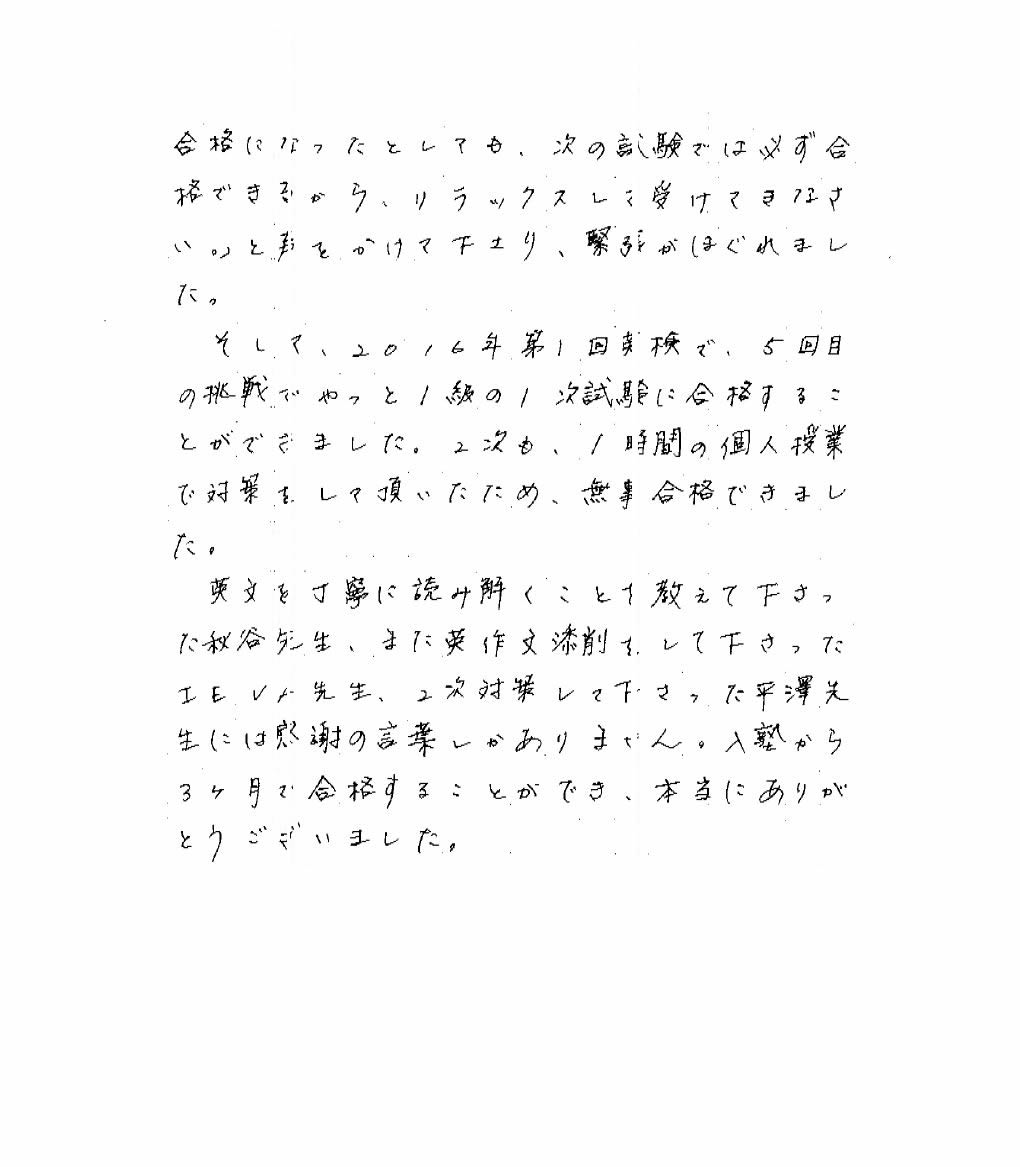 合格になったとしても、次の試験では必ず合
格できるから、リラックスして受けてきなさ
い。」と声をかけて下さり、緊張がほぐれまし
た。
そして、2016年第1回英検で、5回目
の挑戦でやっと1級の1次試験に合格するこ
とができました。2次も、1時間の個人授業
で対策をして頂いたため、無事合格できまし
た。
英文を丁寧に読み解くことを教えて下さっ
た秋谷先生、また英作文添削をして下さった
先生、2次対策して下さった平澤先
生には感謝の言葉しかありません。入塾から
3ヶ月で合格することができ、本当にありが
とうございました。